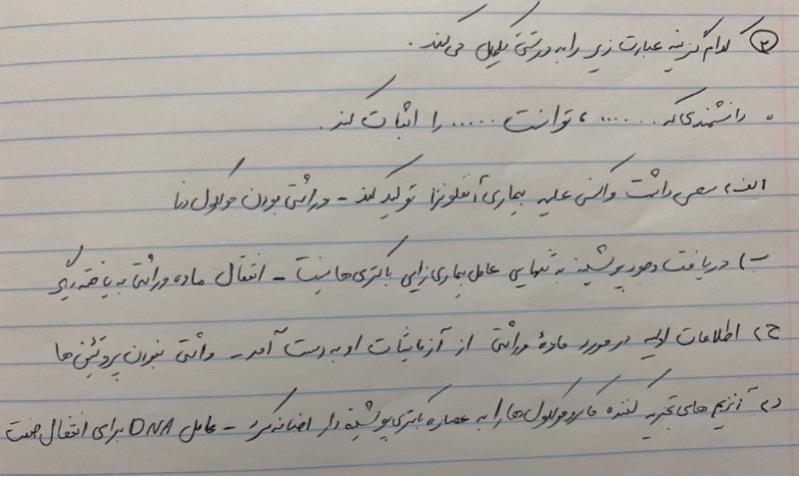 ۲ کدام گزینه عبارت زیر را به درستی تکمیل می‌کند.
• دانشمندی که ......، توانست ..... را اثبات کند.
الف) سعی داشت واکسنی علیه بیماری آنفلونزا تولید کند - وراثتی بودن مولکول دنا
ب) دریافت وجود پوشینه به تنهایی عامل بیماری زایی باکتری ها نیست - انتقال ماده وراثتی به یاخته دیگر
ج) اطلاعات اولیه در مورد مادهٔ وراثتی از آزمایشات او به دست آمد - وراثتی نبودن پروتئین ها
د) آنزیم های تجزیه کننده ماکرومولکول ها را به عصاره باکتری پوشینه دار اضافه کرد - عامل DNA برای انتقال صفت